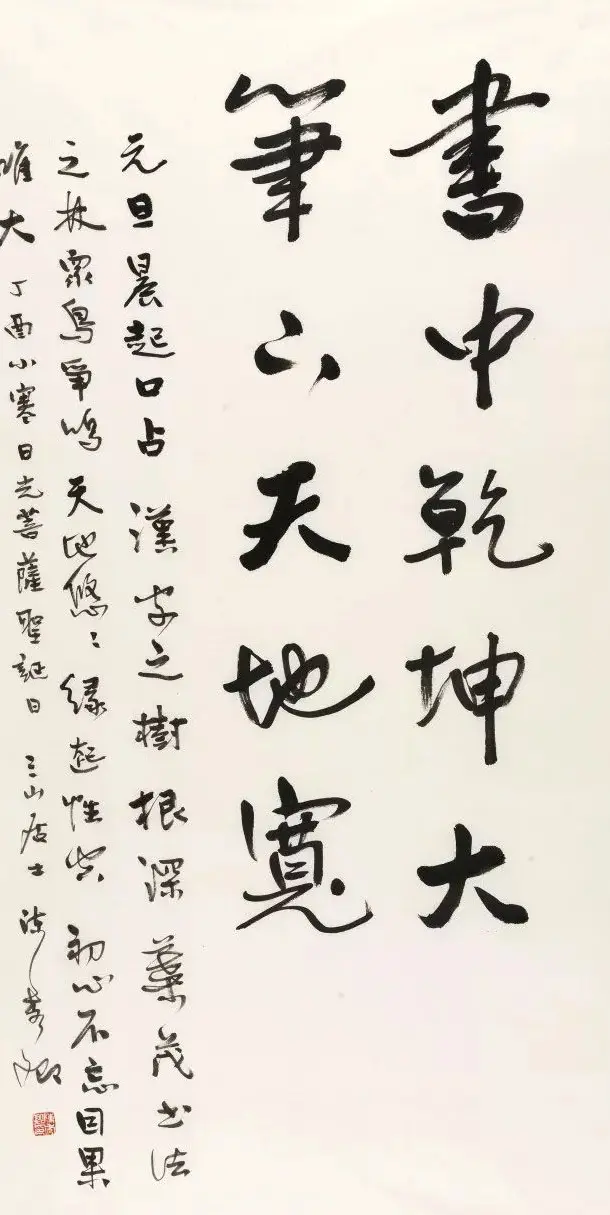 書中乾坤大
筆下天地寬
元旦晨起口占 漢字之樹根深葉茂書法
之林眾鳥爭鳴 天地悠悠緣起性空 初心不忘因果
唯大 丁酉小寒日光菩薩聖誕日 三山居士 陳秀卿